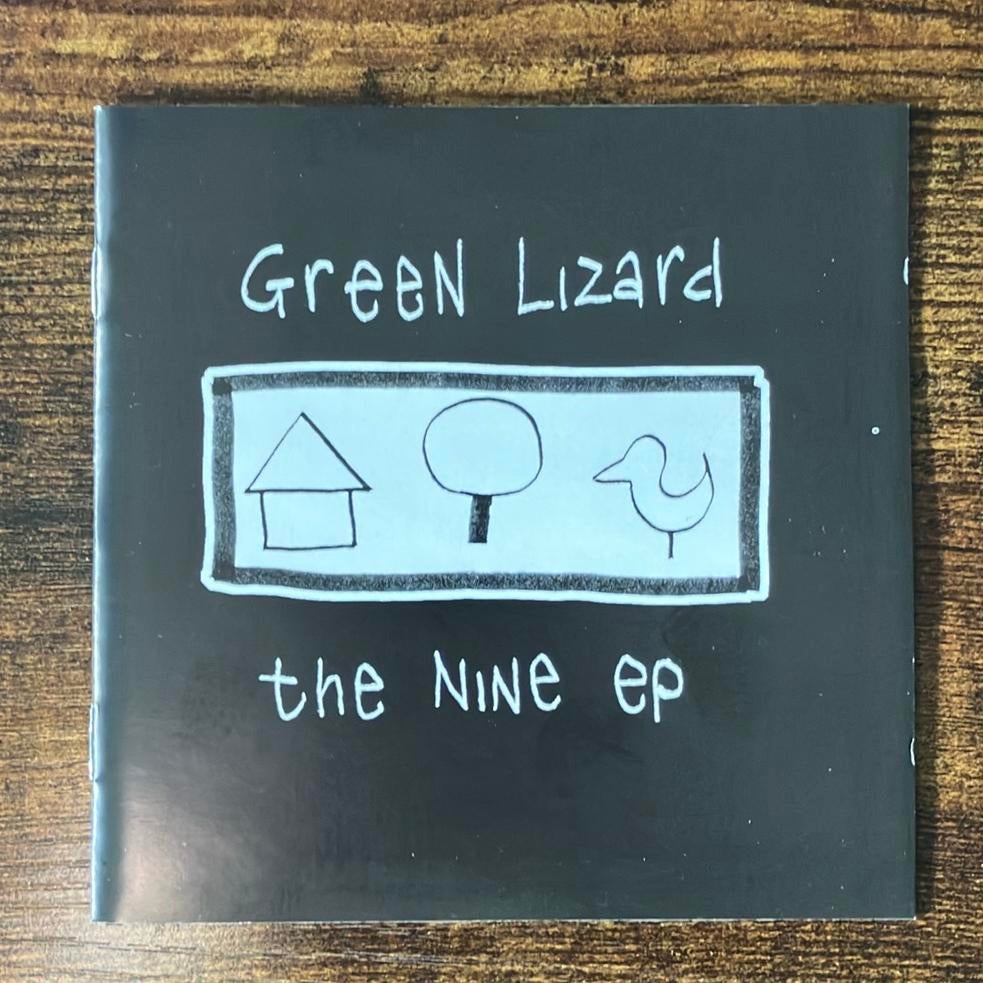 Green Lizard
the Nine ep